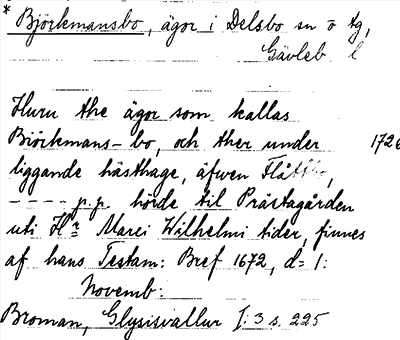 * Björkmansbo, ägor i Delsbo sn o tg,
Gävleb l
Huru the ägor som kallas
Biörkmans-bo, och ther under 1726
liggande hästhage, äfwen
- - - - p.p. hörde till Prästagården
uti Hr Marci Wilhelmi tider, finnes
af hans Testam: Bref 1672, d= 1:
Novemb:
Broman, Glysisvallur I:3 s. 225